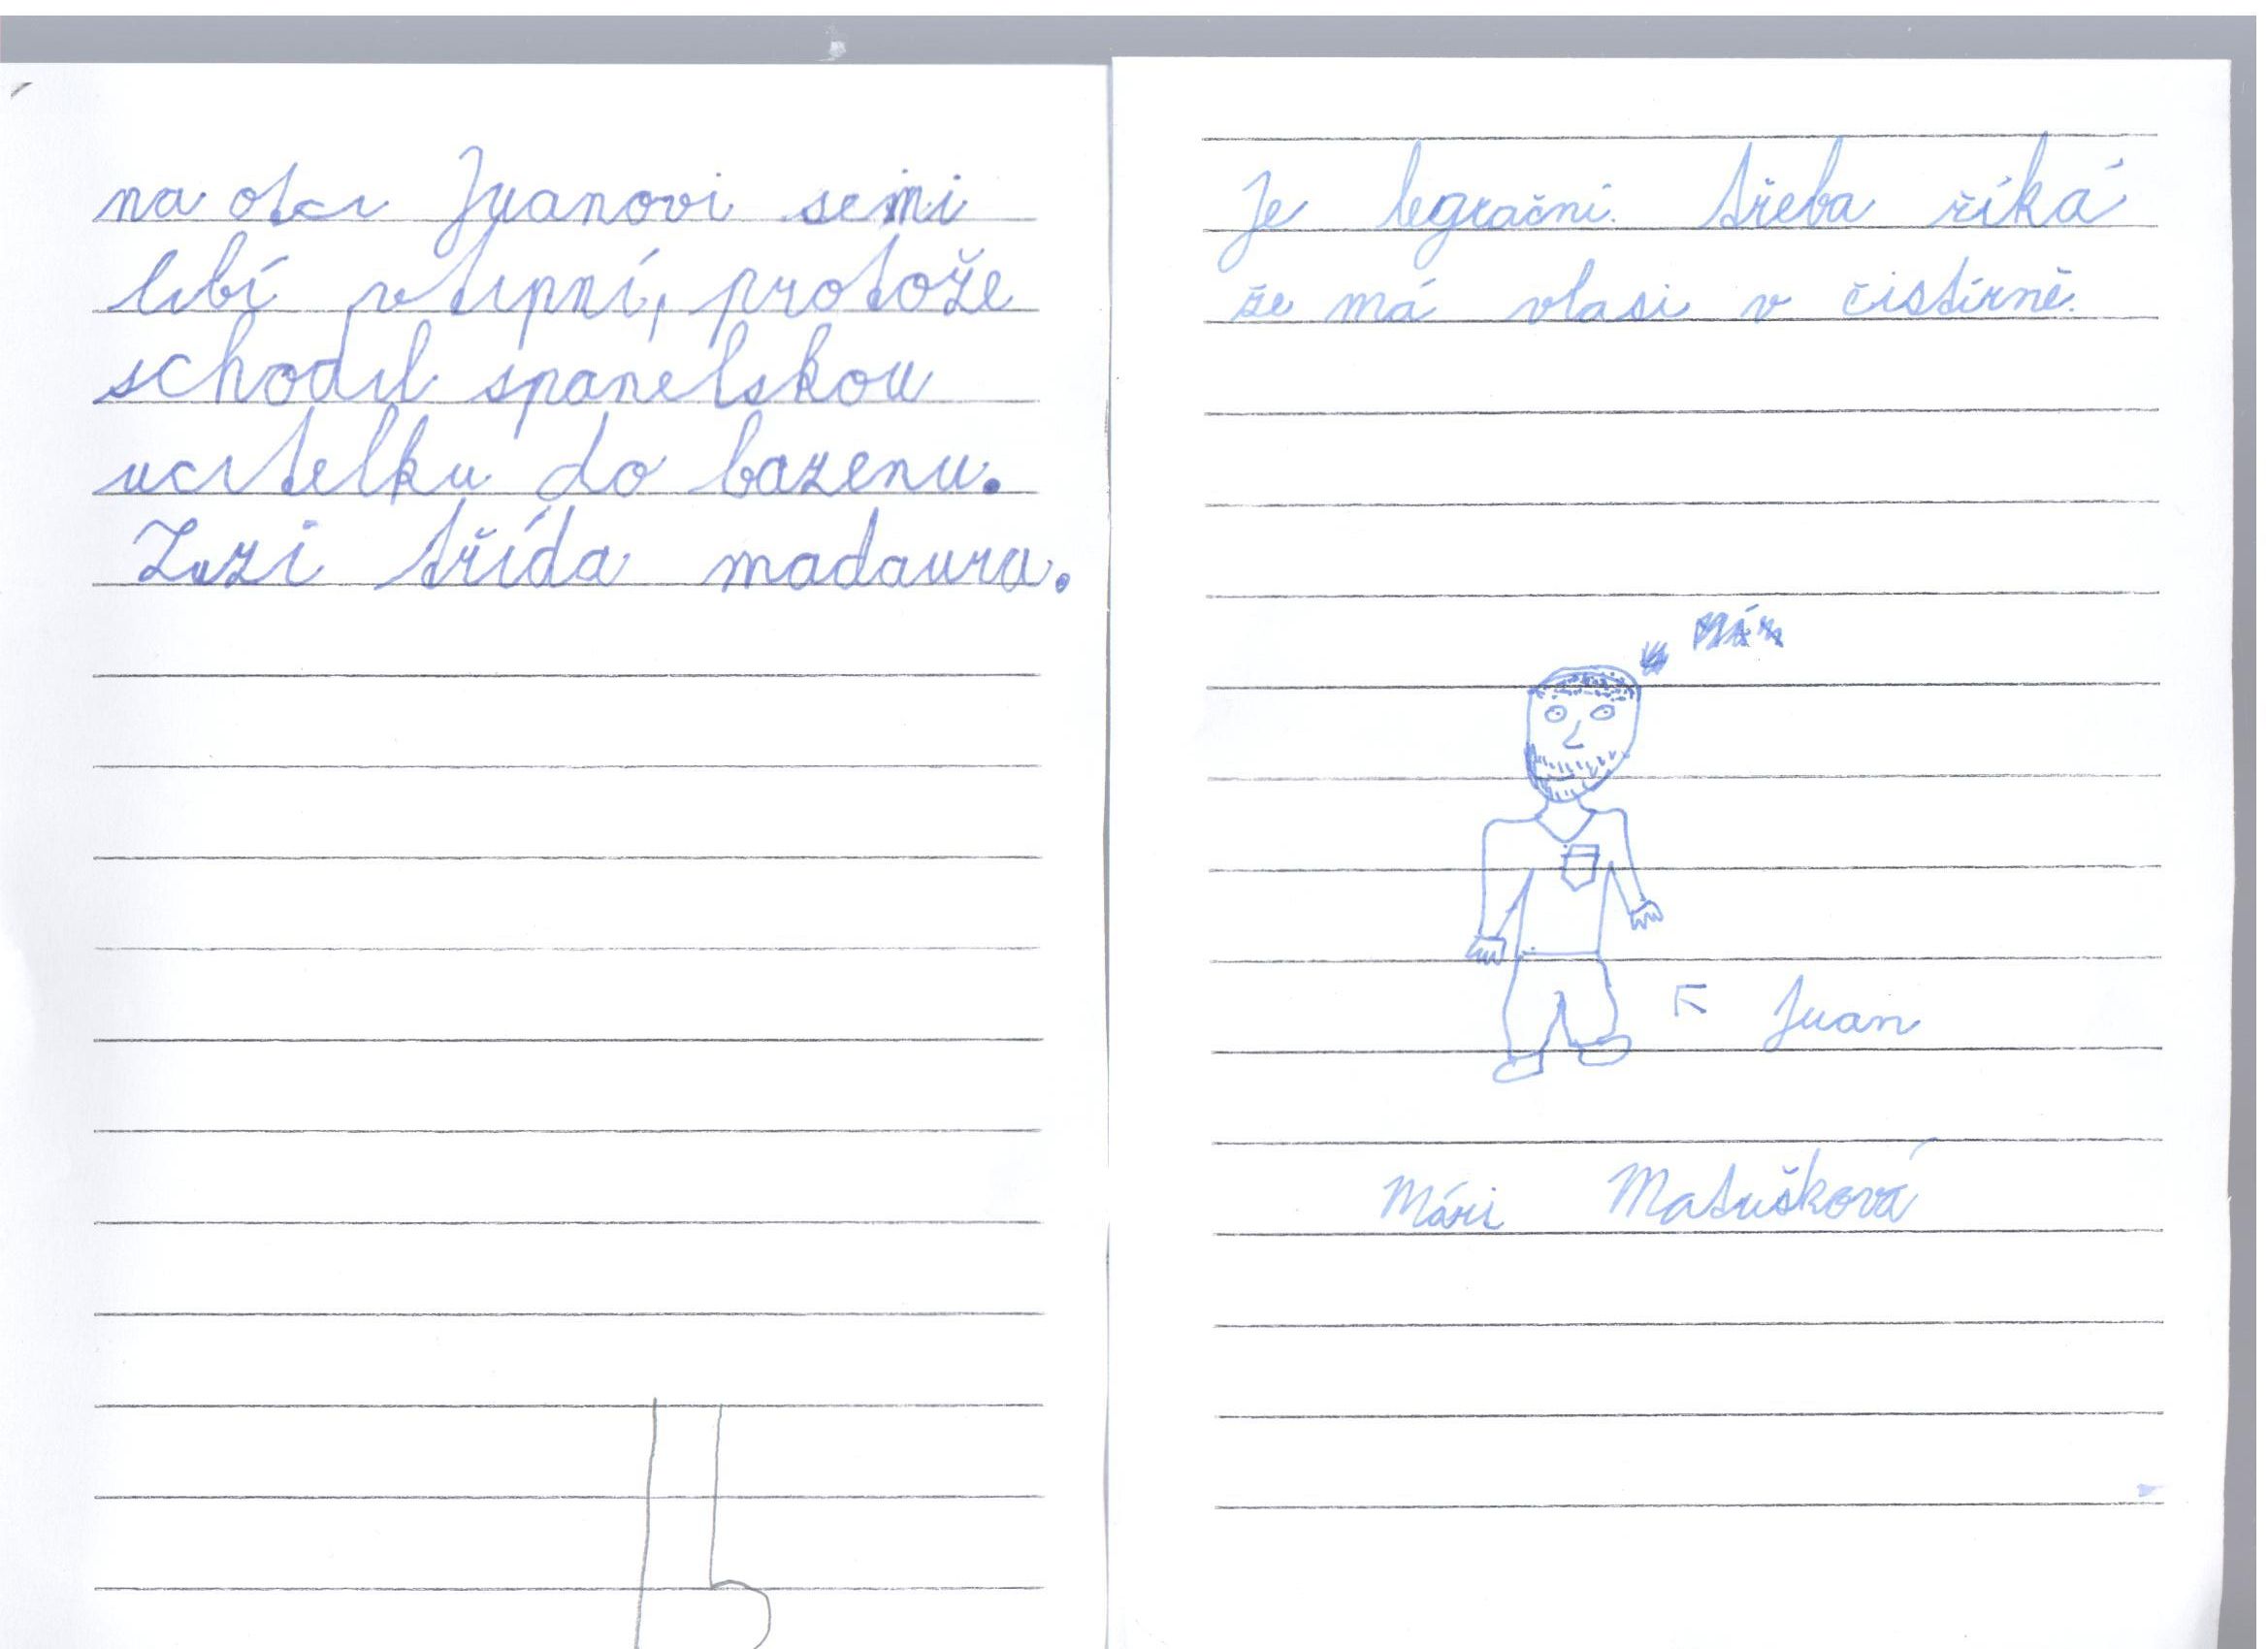 na otci Juanovi semi
libí vtipní, protože
schodil spanelskou
ucitelku do bazenu.
Zuzi třída madaura.
Je legrační. třeba říká
že má vlasi v čistírně.
Juan
Mári Matušková